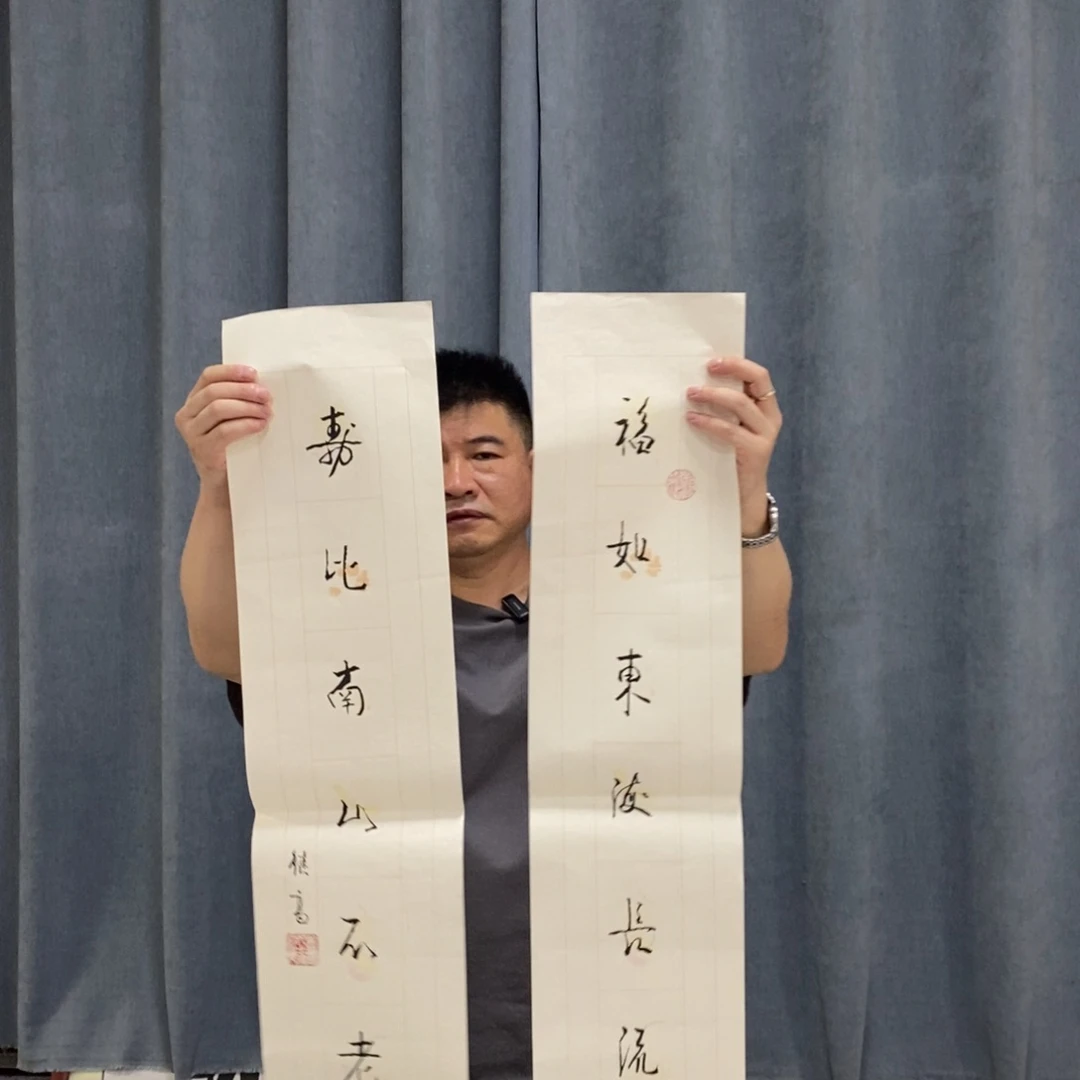 福如東海長流
壽比南山不老